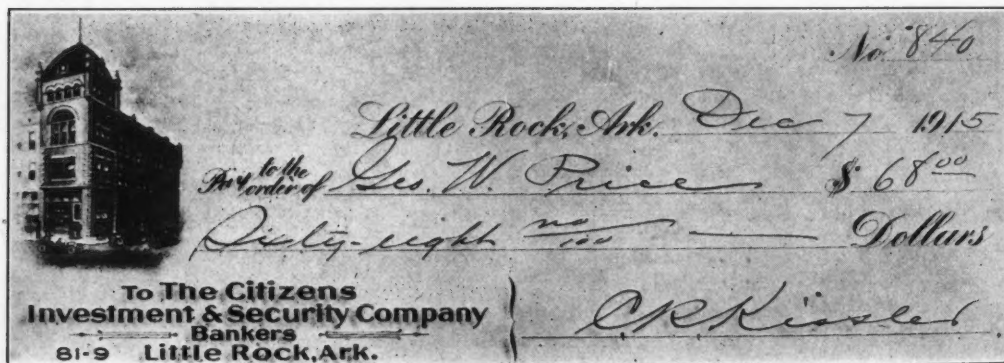 No. 840
Little Rock, Ark. Dec 7 1915
Pay to the order of Geo. W. Price $ 68 00
Sixty-eight no/100 Dollars
To The Citizens
Investment & Security Company
Bankers
81-9 Little Rock, Ark.
C.R. Kissler